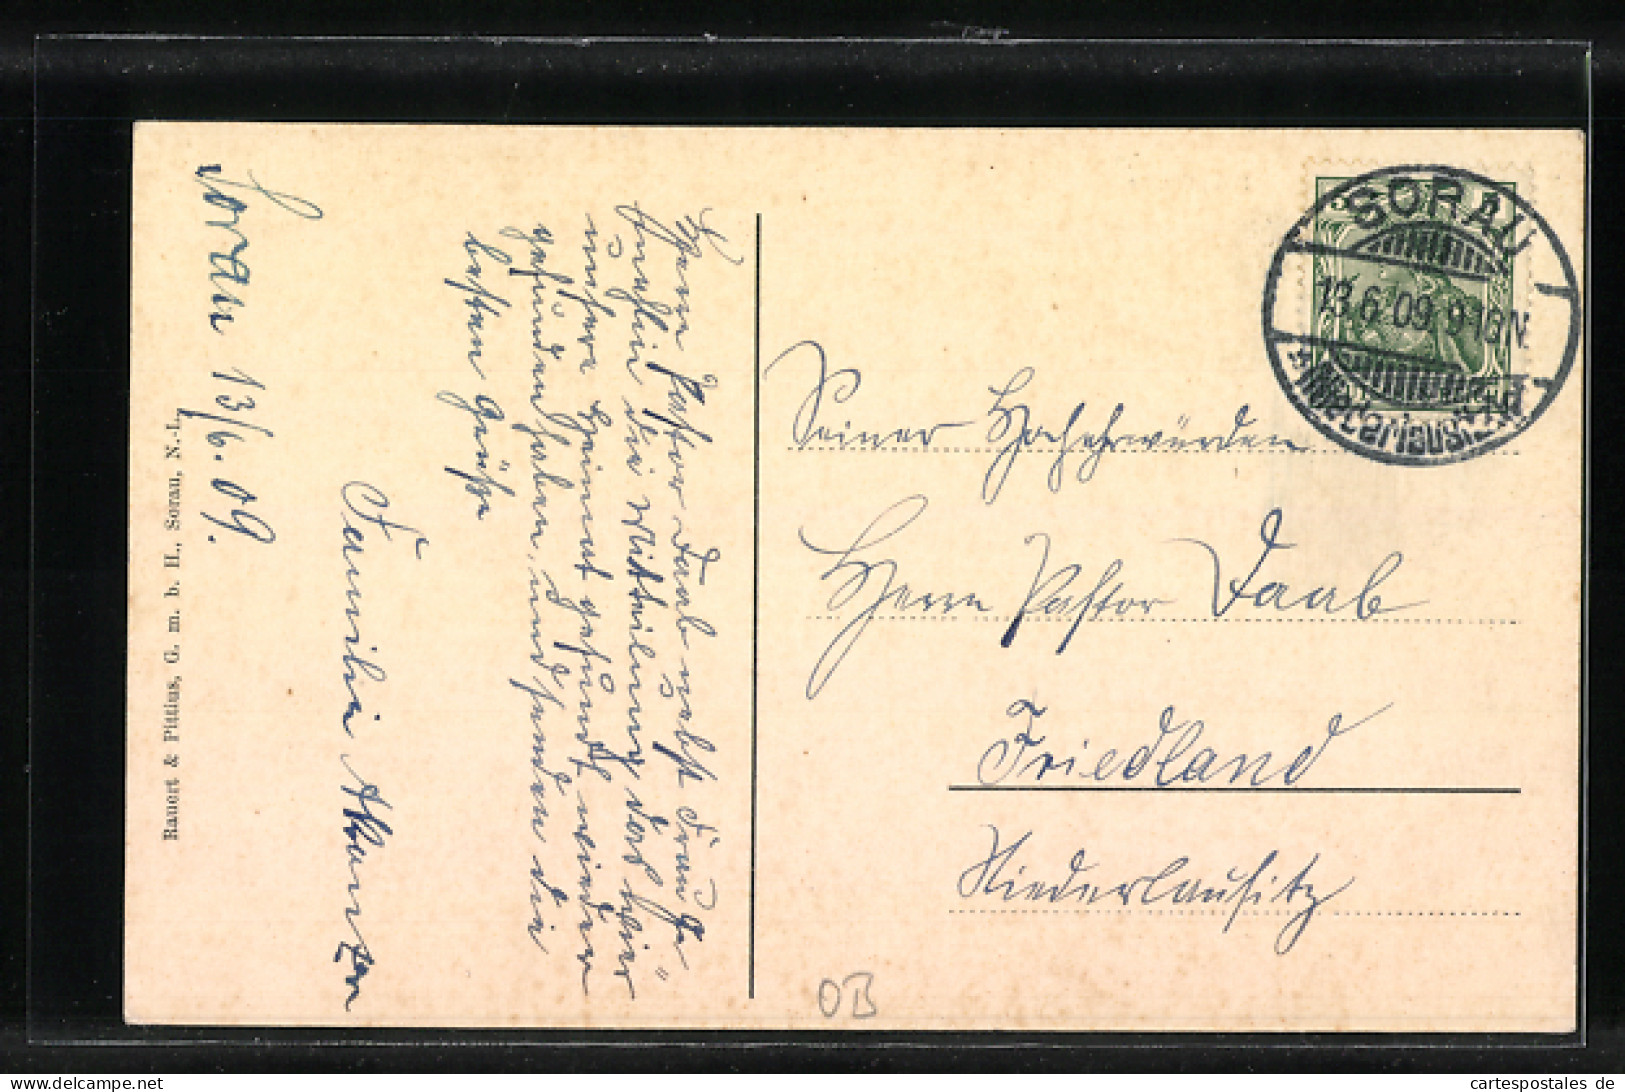 Sorau 13/6. 09.
Herrn Pastor Daab nebst Frau Ge-
mahlin die Mitteilung daß wir
unsere Heimat gesund wieder
gefunden haben, und senden die
besten Grüße
Familie
Rauert & Pittius, G. m. b. H., Sorau, N.-L.
SORAU
13.6.09.9-10N
*(Niederlausitz)*
Seiner Hochehrwürden
Herrn Pastor Daab
Friedland
Niederlausitz
OB
cartespostales de